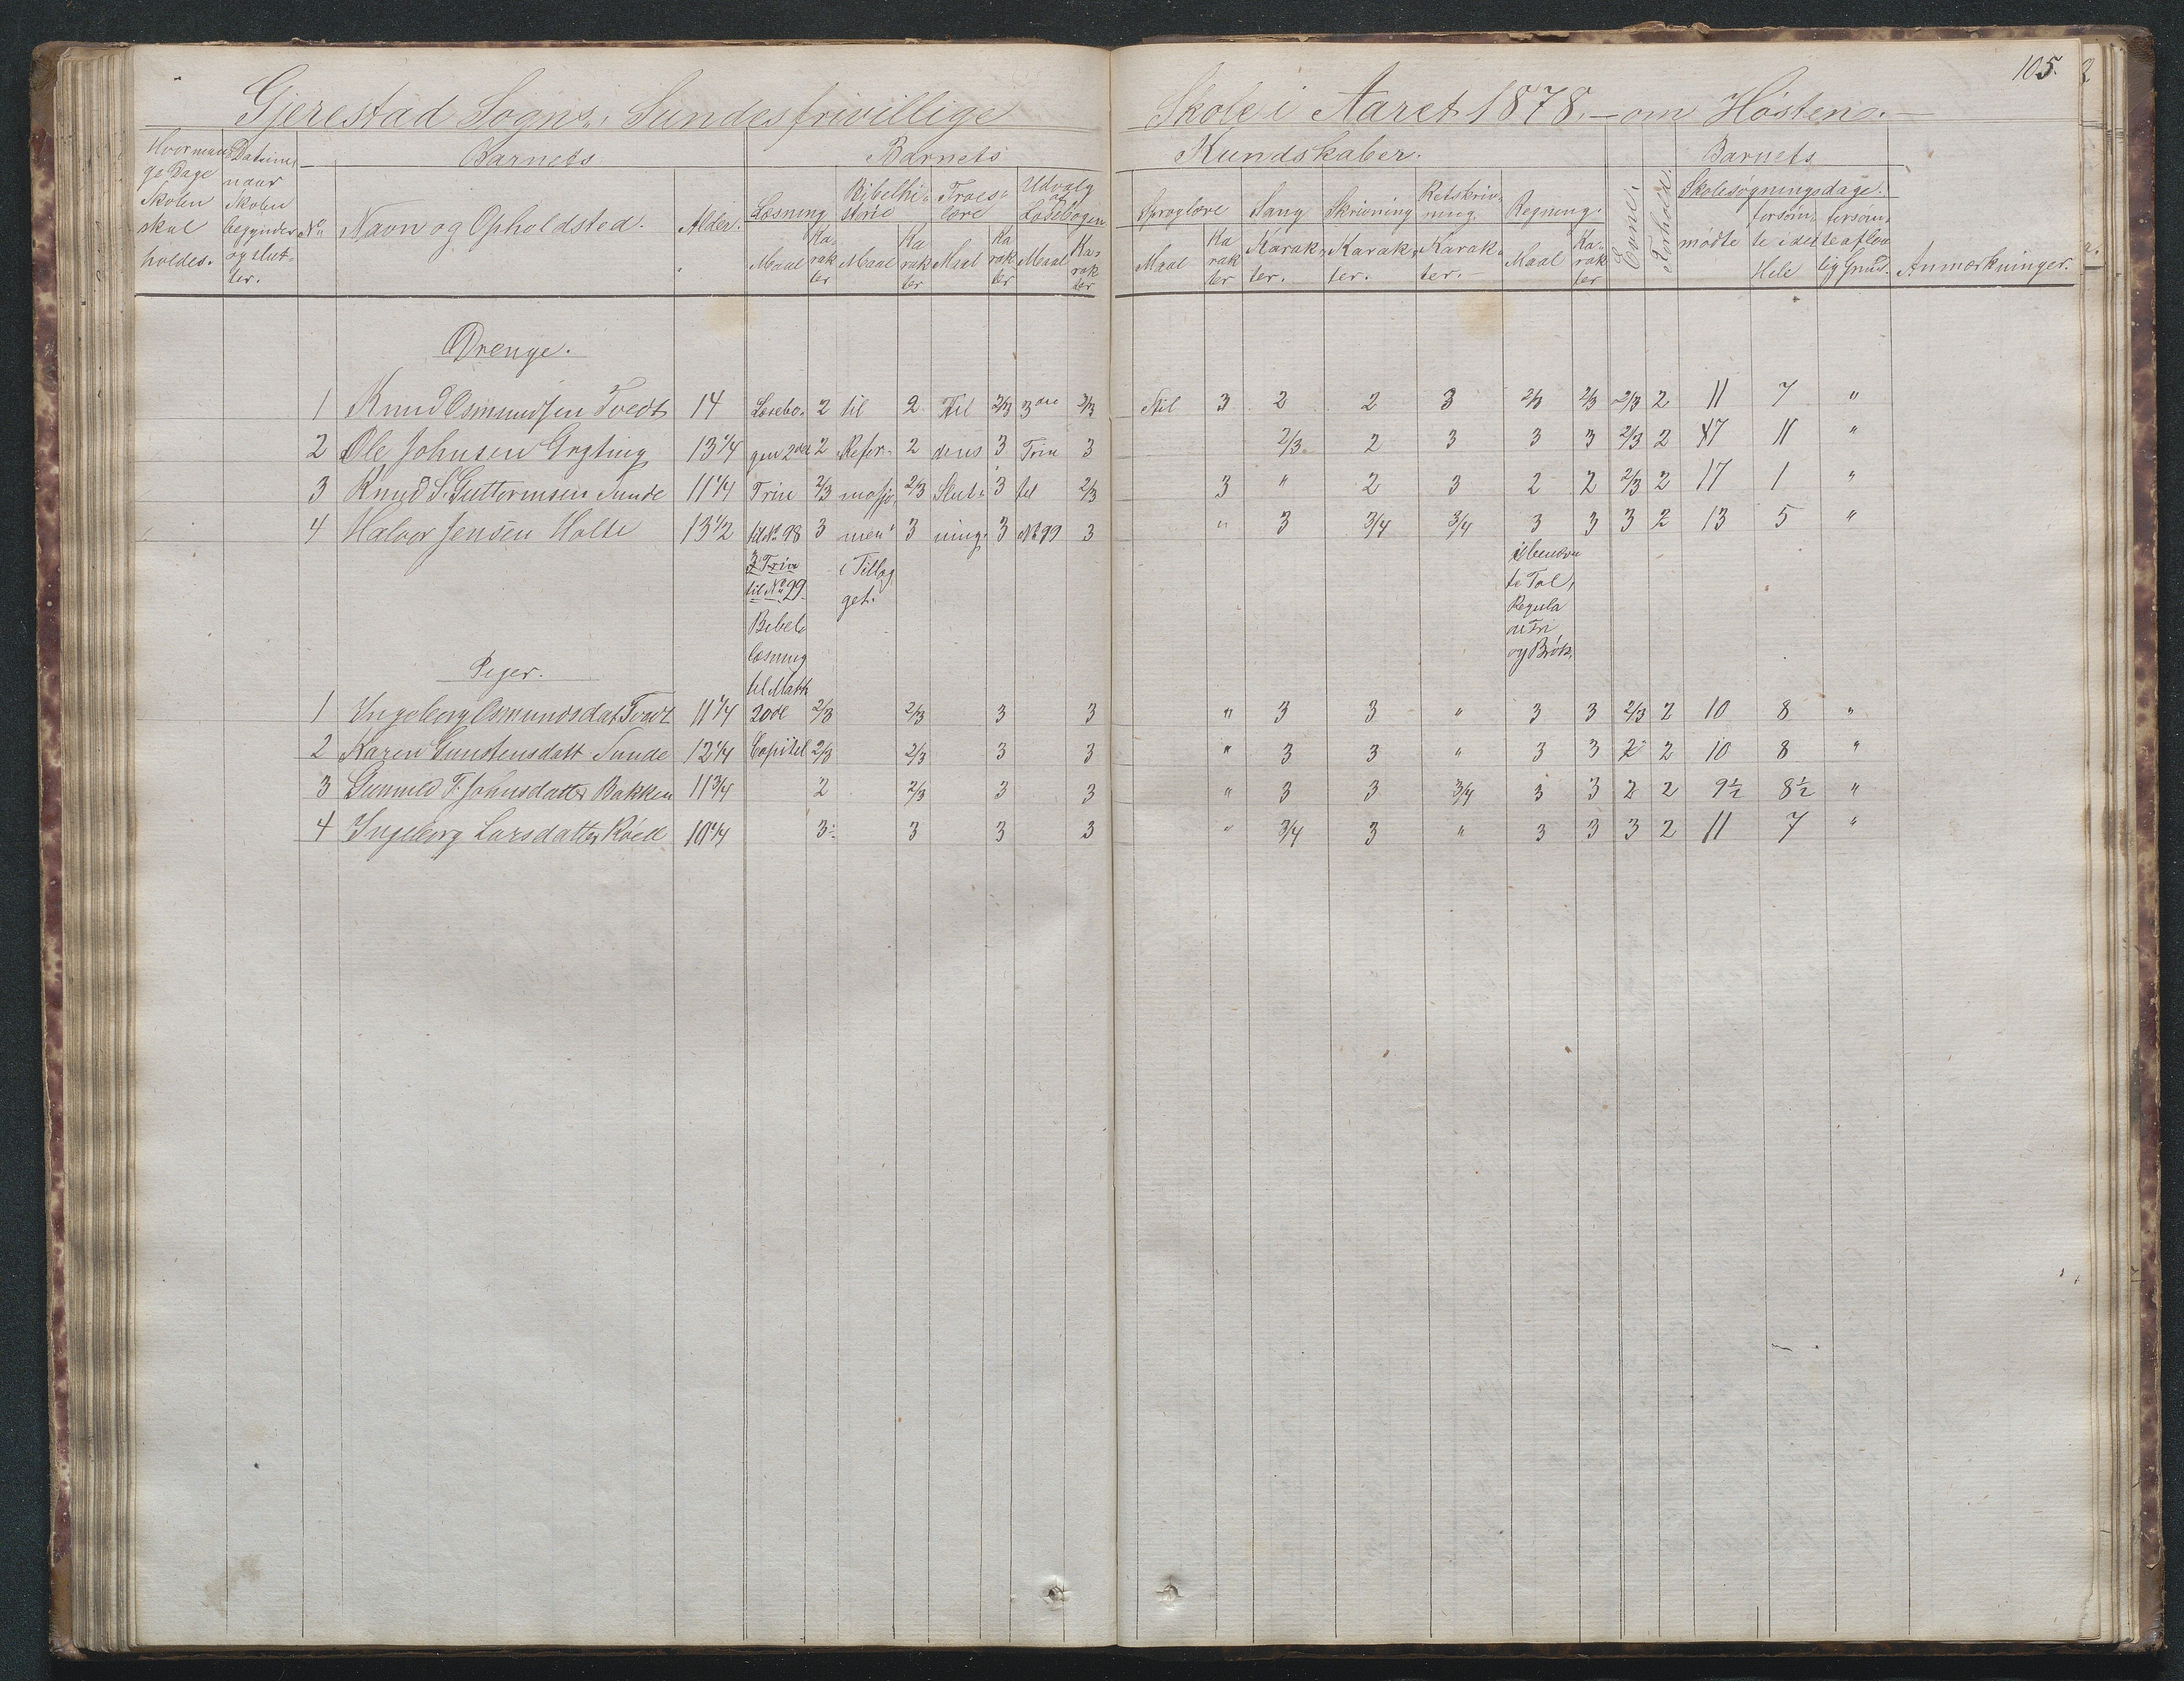 105.
Gjerestad Sogns, Sundes frivillige Skole i Aaret 1878. – om Høsten. –
Hvor mange Dage Skolen skal holdes.
Datum naar Skolen begynder og slutter.
No
Barnets
Navn og Opholdsted.
Alder.
Barnets Kundskaber.
Læsning Maal Karakter
Bibelhistorie Maal Karakter
Troeslære Maal Karakter
Udvalg af Læsebogen Maal Karakter
Sproglære Maal Karakter
Sang Karakter.
Skrivning Karakter.
Retskrivning. Karakter. –
Regning. Maal Karakter
Evne.
Forhold.
Barnets Skolesøgningsdage.
mødte
forsømte i det Hele
forsømte af lovlig Grund.
Anmærkninger.
Drenge.
1 Knud Osmundsen Tvedt 14 Læsebo- 2 til 2 Til 2/3 3die 2/3 Stil 3 2 2 3 2/3 2/3 2/3 2 11 7 "
2 Ole Johnsen 13 1/4 gen 2det 2 Refor- 2 deres 3 Trin 3 2/3 2 3 3 3 2/3 2 17 11 "
3 Knud S. Guttormsen Sunde 11 1/4 Trin 2/3 masjo 2/3 Slut- 3 til 2/3 3 " 2 3 2 2 2/3 2 17 1 "
4 Halvor Jensen Holte 13 1/2 til No 98 3 men" 3 ning. 3 No 99 3 " 3 3/4 3/4 3 3 3 2 13 5 "
3 Trin i Tillæg i benævn
til No 99. get. te Tal,
Regula
Bibel- de Tri
læsning og Brøk.
Piger.
til Matth
1 Ingeborg Osmundsdat Tvedt 11 1/4 20de 2/3 2/3 3 3 " 3 3 " 3 3 2/3 2 10 8 "
2 Karen Gunstensdatt Sunde 12 1/4 Capitel 2/3 2/3 3 3 " 3 3 " 3 3 2 2 10 8 "
3 Gunnild T. Johnsdatter Bakken 11 3/4 2 2/3 3 3 " 3 3 3/4 3 3 2 2 9 1/2 8 1/2 "
4 Ingeborg Larsdatter Røed 10 1/4 3 3 3 3 " 3/4 3 " 3 3 3 2 11 7 "